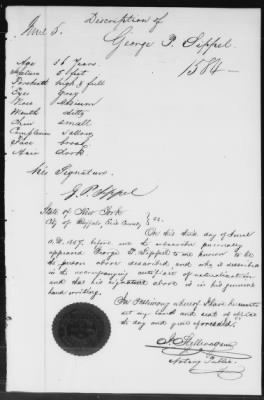 June 5.
Description of
George P. Sippel.
1584
Age 56 Years
Stature 5 feet
Forehead high & full
Eyes Gray
Nose Medium
Mouth ditto
Chin small
Complexion Sallow
Face broad
Hair Dark
His Signature.
G. P. Sippel
State of New York
City of Buffalo, Erie County } ss.
On this day of June
A.D. before me the subscriber personally
appeared George P. Sippel to me known to be
the person above described, and who is described
in the accompanying certificate of naturalization
and that his signature above is in his genuine
hand writing.
In testimony whereof I have hereunto
set my hand and seal of office
the day and year aforesaid.
Notary Public